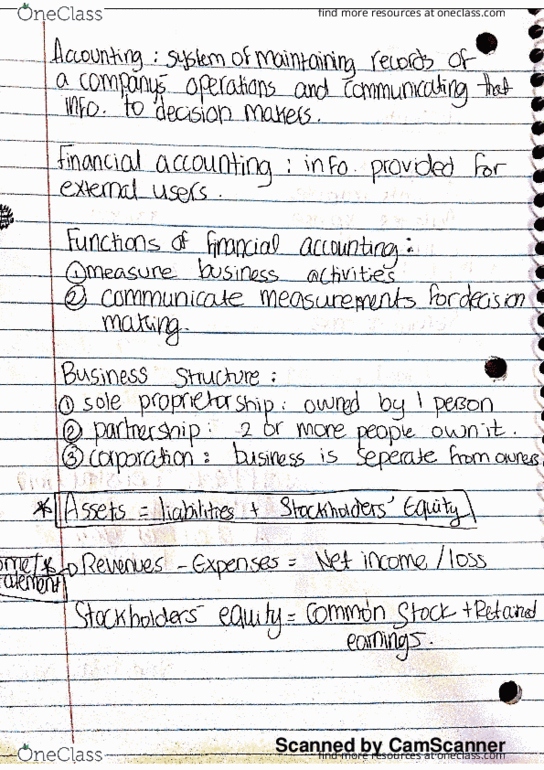 OneClass
find more resources at oneclass.com
Accounting : system of maintaining records of
a company's operations and communicating that
info. to decision makers.
financial accounting : info. provided for
external users.
Functions of financial accounting :
① measure business activities
② communicate measurements for decision
making.
Business Structure :
① sole proprietorship : owned by 1 person
② partnership : 2 or more people own it.
③ corporation : business is seperate from owners
* Assets = liabilities + Stockholders' Equity
Revenues - Expenses = Net income / loss
Stockholders' equity = Common Stock + Retained
earnings.
Scanned by CamScanner
OneClass
find more resources at oneclass.com